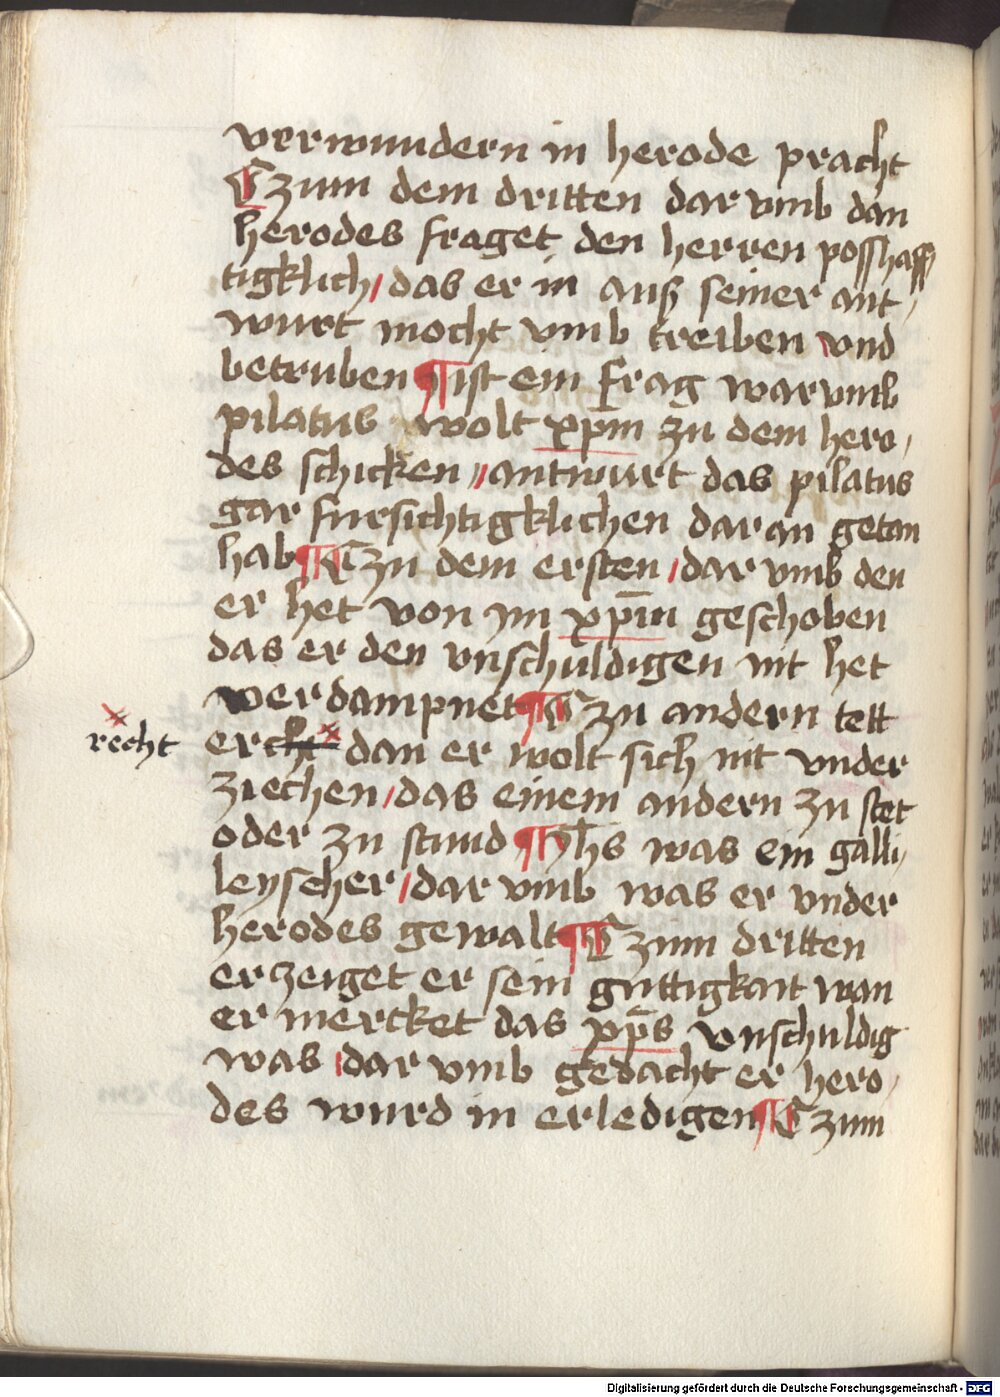 verwundern in herode pracht
¶ zum dem dritten dar vmb dan
herodes fraget den herren posshaff
tigklich / das er in auß seiner ant /
wurt mocht vmb treiben vnd
betruben ¶ ist ein frag warvmb
pilatus wolt xp̄m zu dem hero /
des schicken // antwurt das pilatus
gar fursichtigklichen daran getan
hab ¶ zu dem ersten / dar vmb den
er het von im xp̄m geschoben
das er den vnschuldigen nit het
verdampnet ¶ zu andern tett
recht
er dan er wolt sich nit vnder
ziechen / das einem andern zu stet
oder zu stund ¶ Jh̄s was ein galli /
leyscher / dar vmb was er vnder
herodes gewalt ¶ zum dritten
erzeiget er sein guttigkait wan
er mercket das xp̄s vnschuldig
was / dar vmb gedacht er hero /
des wurd in erledigen ¶ zum
Digitalisierung gefördert durch die Deutsche Forschungsgemeinschaft - DFG